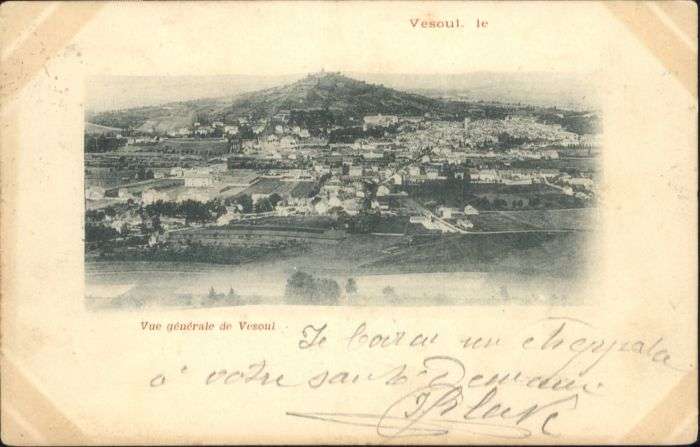 Vesoul, le
Vue générale de Vesoul
Je un
à votre santé Demain